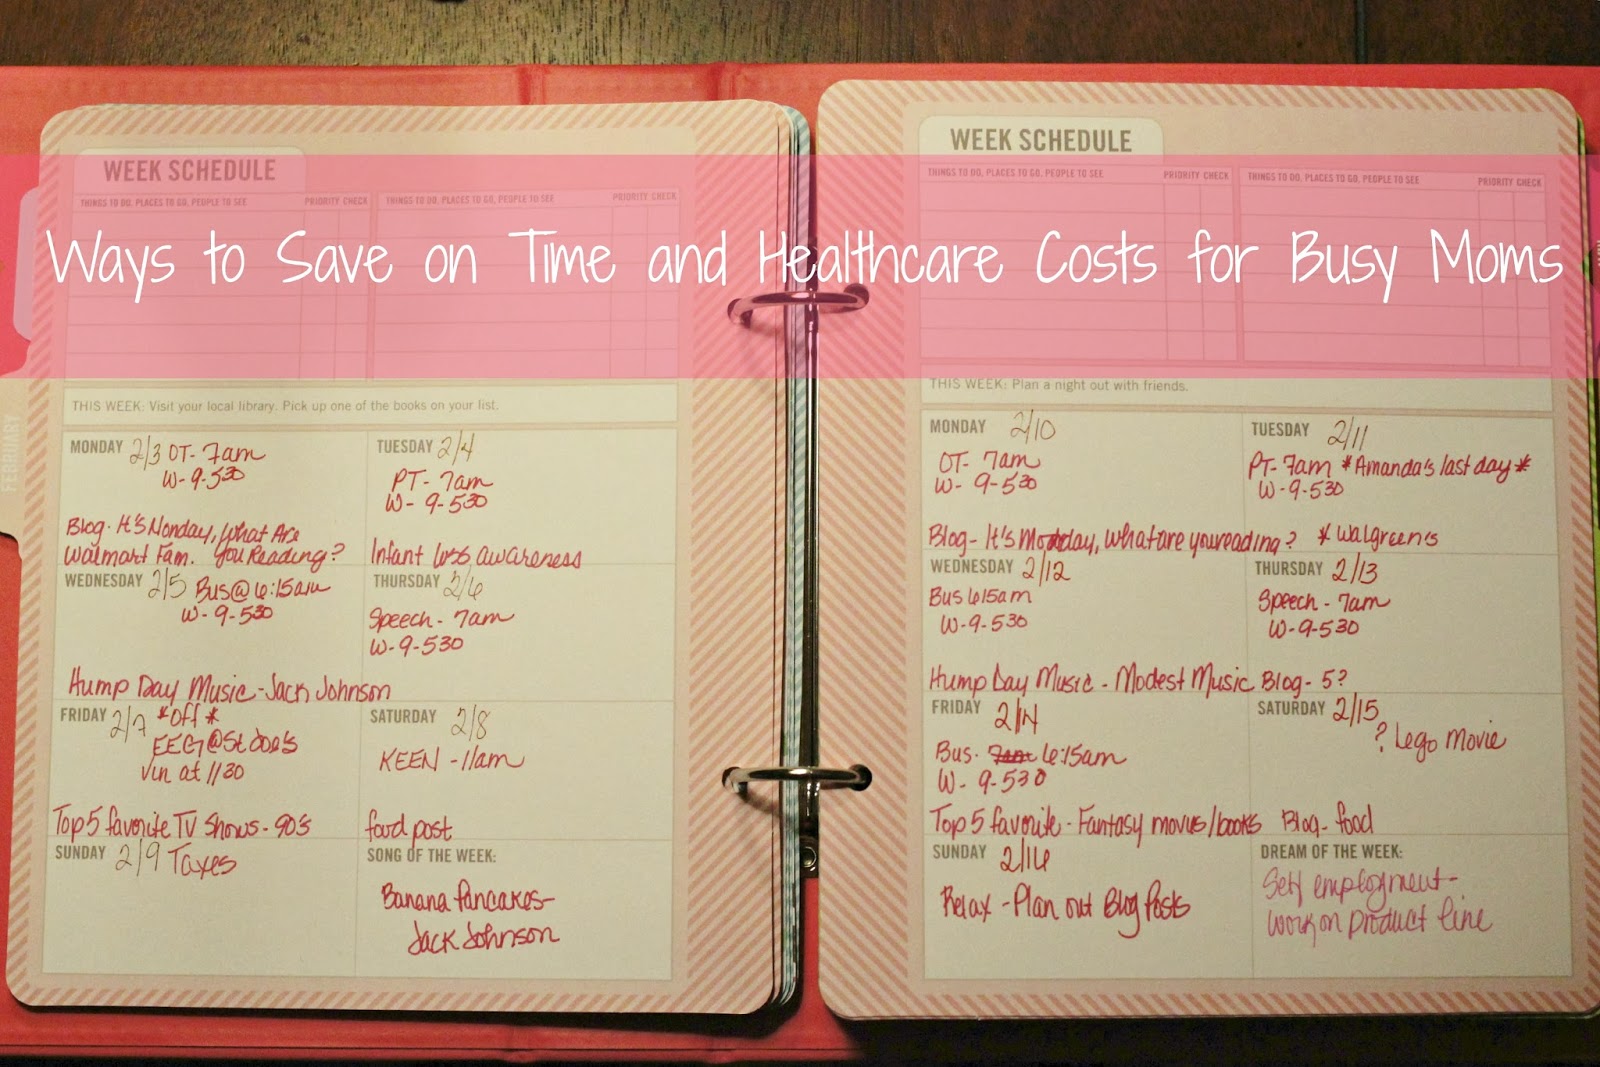 Ways to Save on Time and Healthcare Costs for Busy Moms
WEEK SCHEDULE
THINGS TO DO, PLACES TO GO, PEOPLE TO SEE PRIORITY CHECK THINGS TO DO, PLACES TO GO, PEOPLE TO SEE PRIORITY CHECK
THIS WEEK: Visit your local library. Pick up one of the books on your list.
FEBRUARY
MONDAY 2/3 OT- 7am
W- 9-530
Blog- It's Monday, What Are
Walmart Fam. You Reading?
TUESDAY 2/4
PT- 7am
W- 9-530
Infant loss awareness
WEDNESDAY 2/5 Bus@6:15am
W- 9-530
Hump Day Music-Jack Johnson
THURSDAY 2/6
Speech- 7am
W-9-530
FRIDAY 2/7 *Off*
EEG@St Joe's
at 1130
Top 5 favorite TV Shows- 90's
SATURDAY 2/8
KEEN -11am
food post
SUNDAY 2/9 Taxes
SONG OF THE WEEK:
Banana Pancakes-
Jack Johnson
WEEK SCHEDULE
THINGS TO DO, PLACES TO GO, PEOPLE TO SEE PRIORITY CHECK THINGS TO DO, PLACES TO GO, PEOPLE TO SEE PRIORITY CHECK
THIS WEEK: Plan a night out with friends.
MONDAY 2/10
OT- 7am
W- 9-530
Blog- It's Monday, what are you reading?
TUESDAY 2/11
PT- 7am *Amanda's last day*
W-9-530
* Walgreen's
WEDNESDAY 2/12
Bus 615am
W-9-530
Hump Day Music - Modest Music
THURSDAY 2/13
Speech - 7am
W-9-530
Blog- 5?
FRIDAY 2/14
Bus- 7am 6:15am
W- 9-530
Top 5 favorite - Fantasy movies/books
SATURDAY 2/15
? Lego Movie
Blog- food
SUNDAY 2/16
Relax - Plan out Blog Posts
DREAM OF THE WEEK:
Self employment-
work on product line